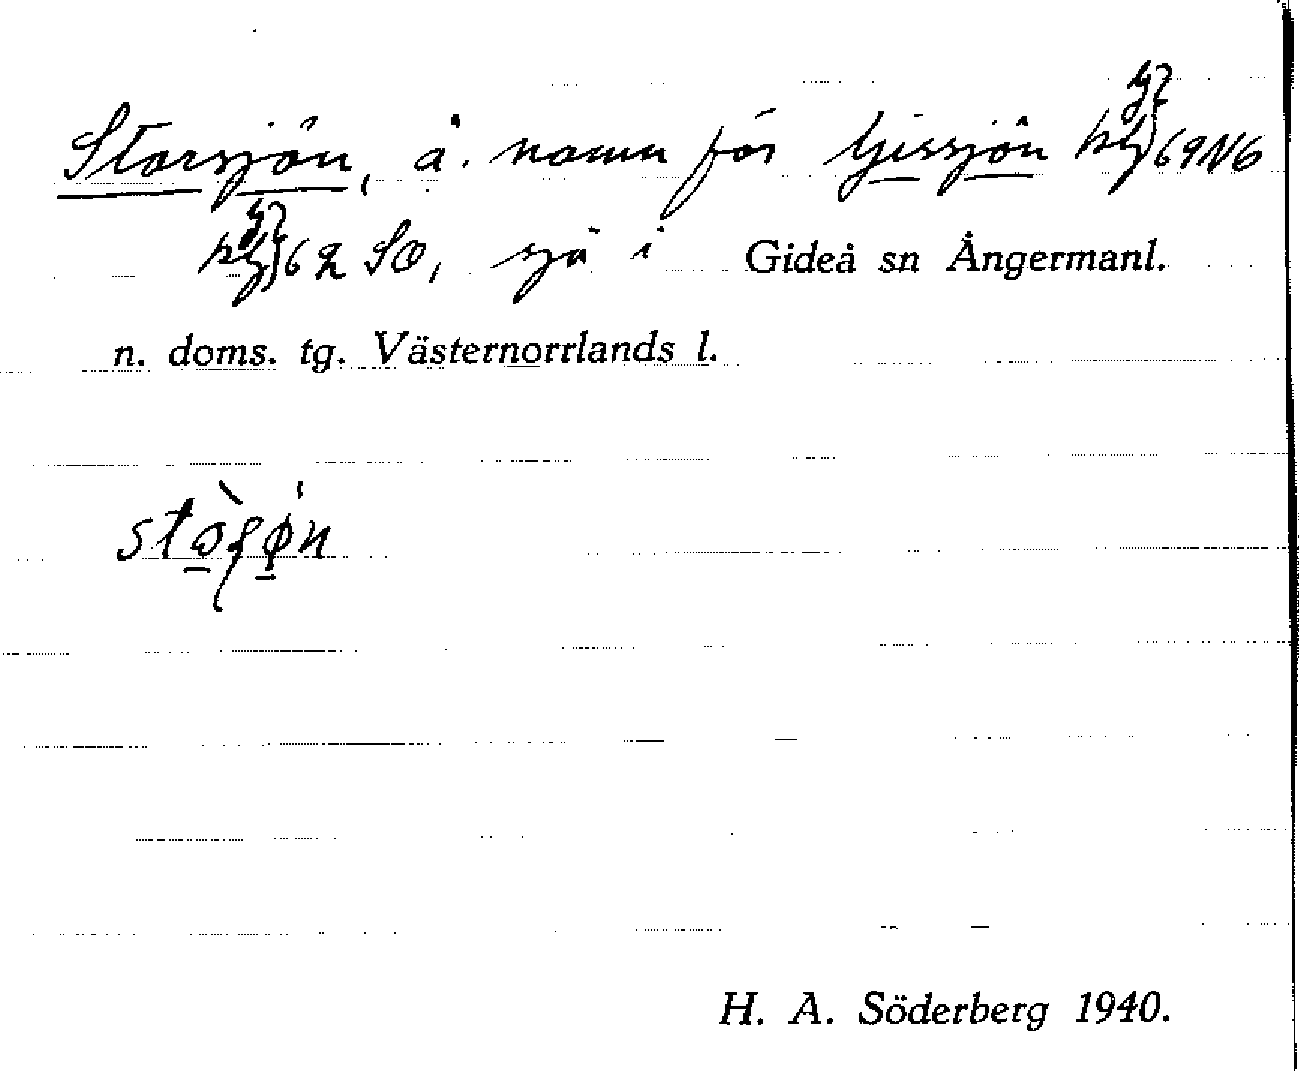 Storsjön, å. namn för Gissjön 69 NV6
62 SO, sjö i Gideå sn Ångermanl.
n. doms. tg. Västernorrlands l.
H. A. Söderberg 1940.